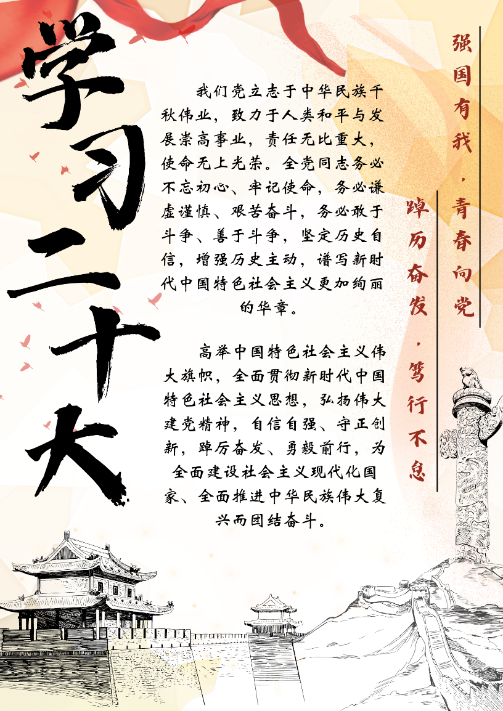 学习二十大
我们党立志于中华民族千
秋伟业，致力于人类和平与发
展崇高事业，责任无比重大，
使命无上光荣。全党同志务必
不忘初心、牢记使命，务必谦
虚谨慎、艰苦奋斗，务必敢于
斗争、善于斗争，坚定历史自
信，增强历史主动，谱写新时
代中国特色社会主义更加绚丽
的华章。
高举中国特色社会主义伟
大旗帜，全面贯彻新时代中国
特色社会主义思想，弘扬伟大
建党精神，自信自强、守正创
新，踔厉奋发、勇毅前行，为
全面建设社会主义现代化国
家、全面推进中华民族伟大复
兴而团结奋斗。
强国有我，青春向党
踔厉奋发，笃行不怠